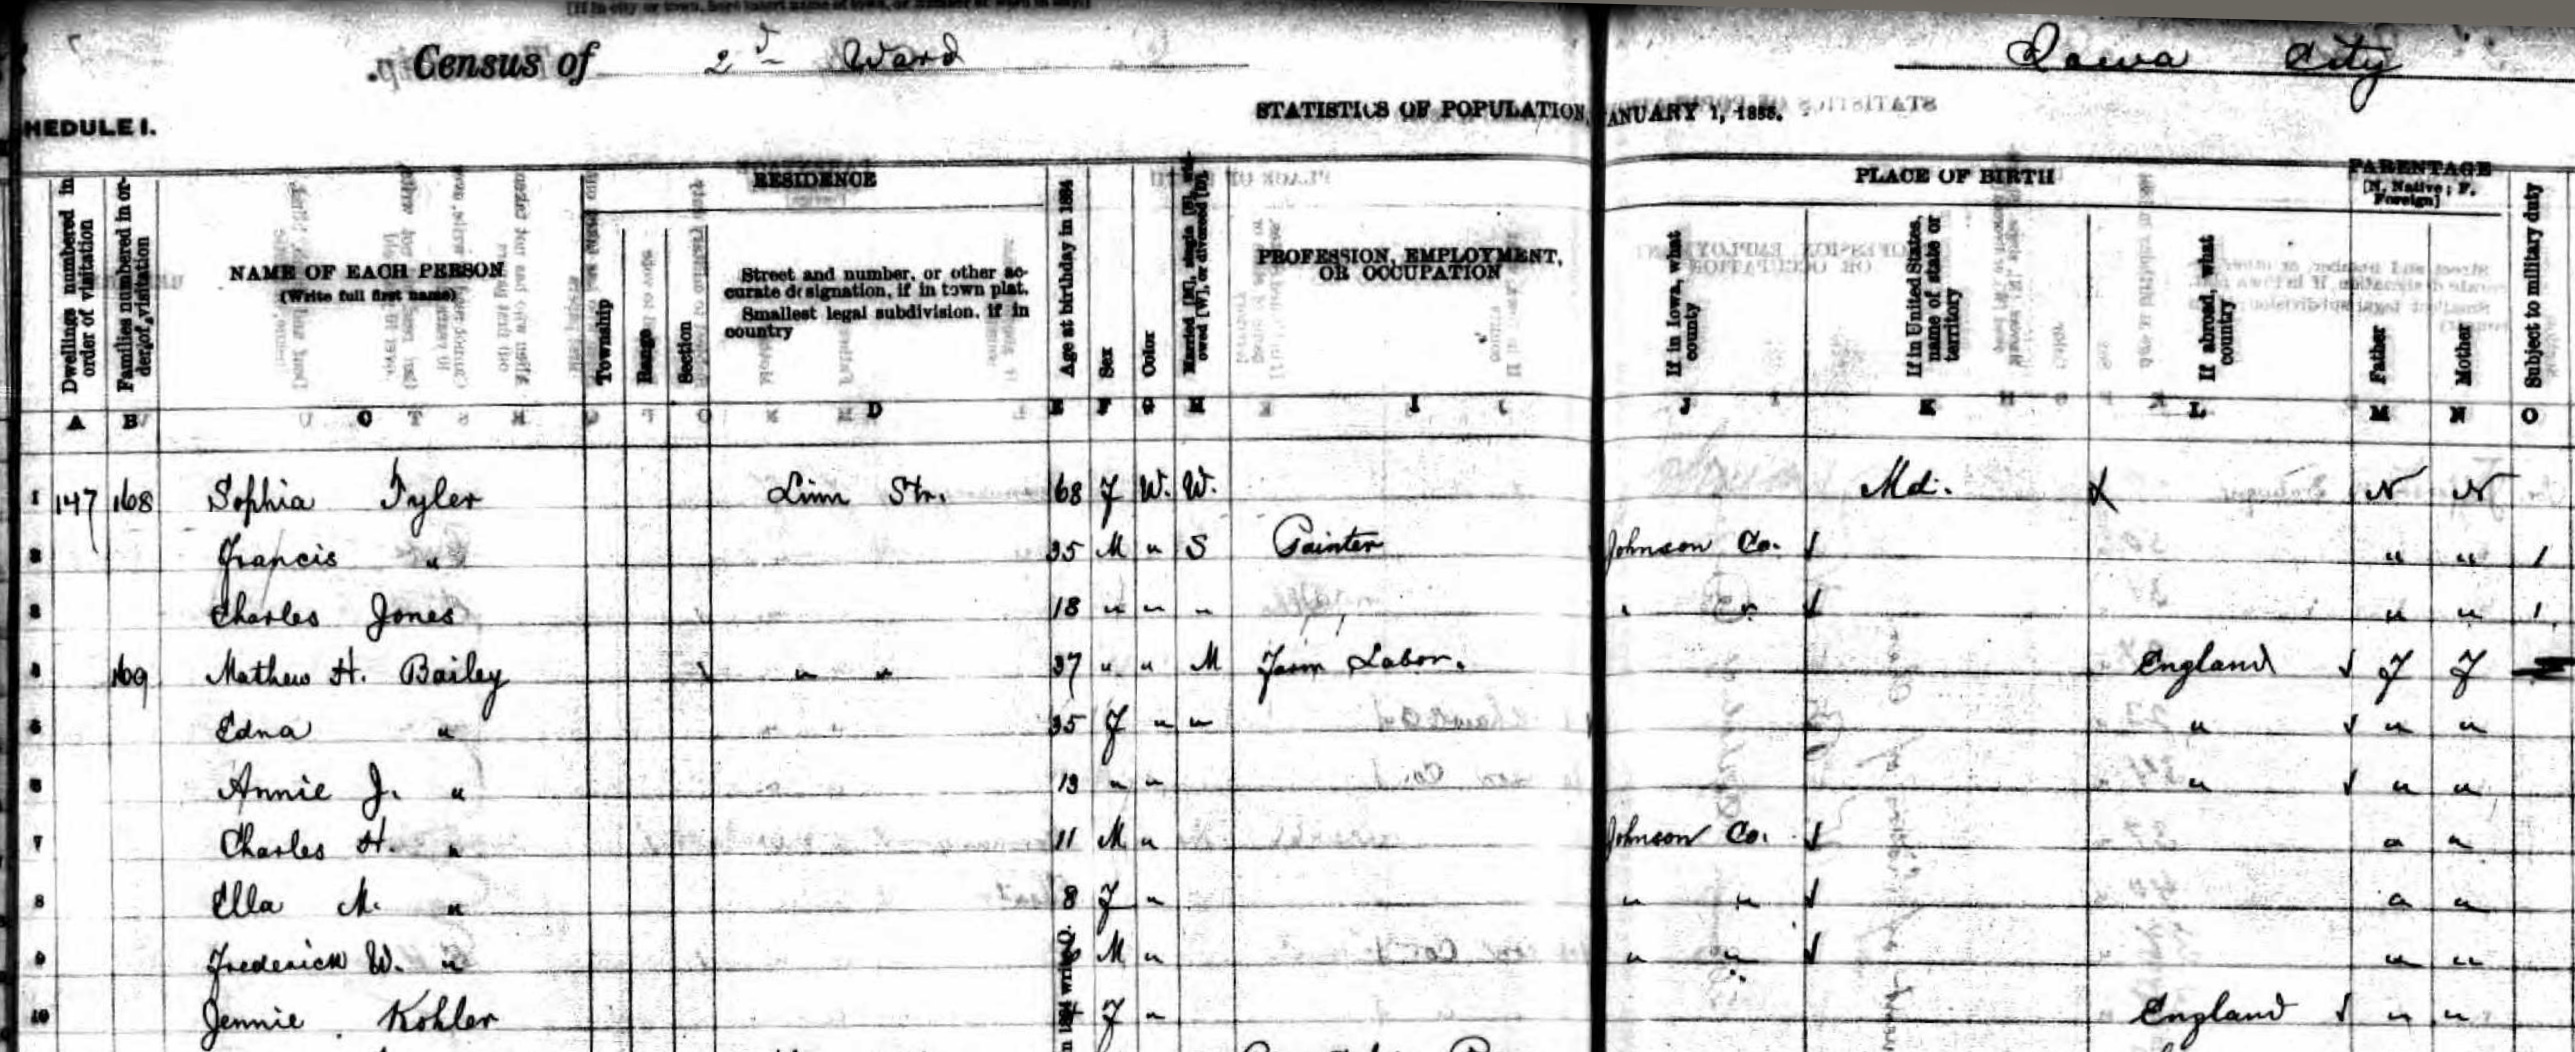 Census of 2d Ward Iowa City
STATISTICS OF POPULATION, ANUARY 1, 1885.
HEDULE I.
RESIDENCE PLACE OF BIRTH PARENTAGE
[N. Native; F. Foreign]
Dwellings numbered in order of visitation
Families numbered in order of visitation
NAME OF EACH PERSON
(Write full first name)
Township
Range
Section
Street and number, or other accurate designation, if in town plat. Smallest legal subdivision, if in country
Age at birthday in 1884
Sex
Color
Married [M], single [S], widowed [W], or divorced [D].
PROFESSION, EMPLOYMENT, OR OCCUPATION
If in Iowa, what county
If in United States, name of state or territory
If abroad, what country
Father
Mother
Subject to military duty
A B C D E F G H I J K L M N O
1 147 168 Sophia Tyler Linn Str. 68 F W. W. Md. N N
2 Francis " 35 M " S Painter Johnson Co. " " 1
3 Charles Jones 18 " " " " " " " 1
4 169 Mathew H. Bailey " " 37 " " M Farm Labor. England F F
5 Edna " 35 F " " " " "
6 Annie J. " 13 " " " " "
7 Charles H. " 11 M " Johnson Co. " "
8 Ella M. " 8 F " " " " "
9 Frederick W. " M " " " " "
10 Jennie Kohler F " England " "